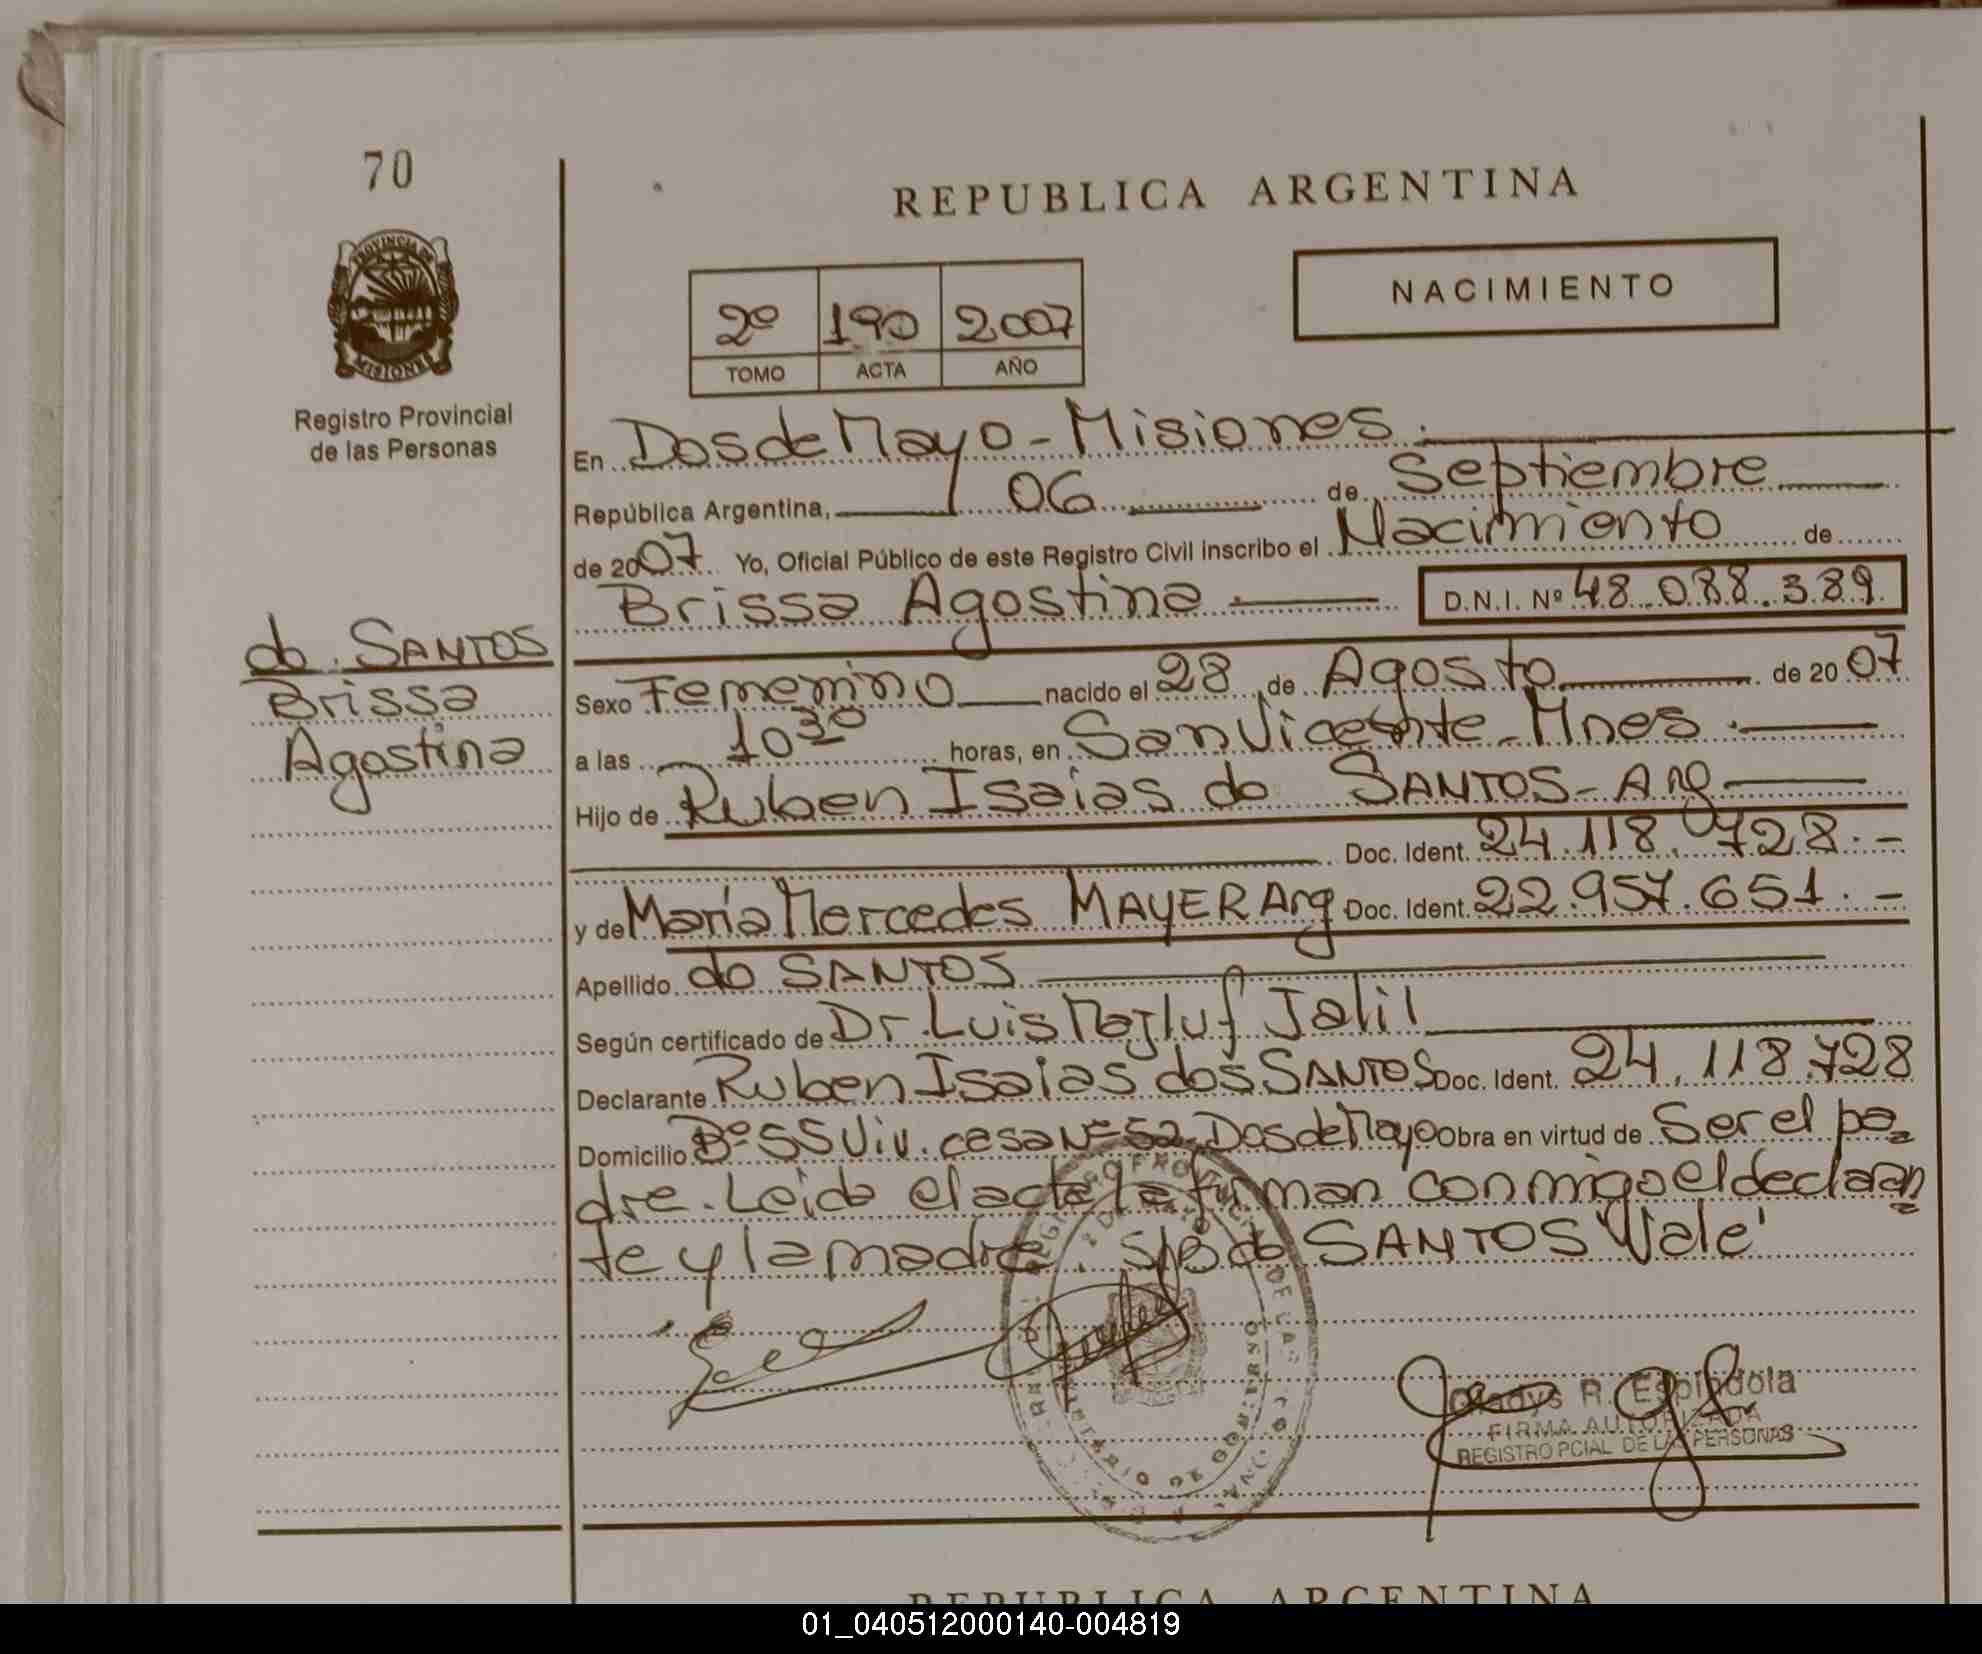 70
REPUBLICA ARGENTINA
PROVINCIA DE
MISIONES
NACIMIENTO
2º 190 2007
TOMO ACTA AÑO
Registro Provincial
de las Personas
En Dos de Mayo - Misiones.
República Argentina, 06 de Septiembre
de 2007 Yo, Oficial Público de este Registro Civil inscribo el Nacimiento de
Brissa Agostina D.N.I. Nº 48.088.389
do SANTOS
Brissa
Agostina
Sexo Femenino nacido el 28 de Agosto de 2007
a las 10 30 horas, en San Vicente - Mnes.
Hijo de Ruben Isaias do SANTOS - Arg
Doc. Ident. 24.118.728.-
y de Maria Mercedes MAYER Arg Doc. Ident. 22.957.651.-
Apellido do SANTOS
Según certificado de Dr. Luis Majluf Jalil
Declarante Ruben Isaias dos SANTOS Doc. Ident. 24.118.728
Domicilio Bº SS Viv. casa Nº 52 Dos de Mayo Obra en virtud de Ser el pa
dre. Leida el acta la firman conmigo el declaran
te y la madre. S/B do SANTOS Vale
Gladys R. Espindola
FIRMA AUTORIZADA
REGISTRO PCIAL DE LAS PERSONAS
REPUBLICA ARGENTINA
01_040512000140-004819